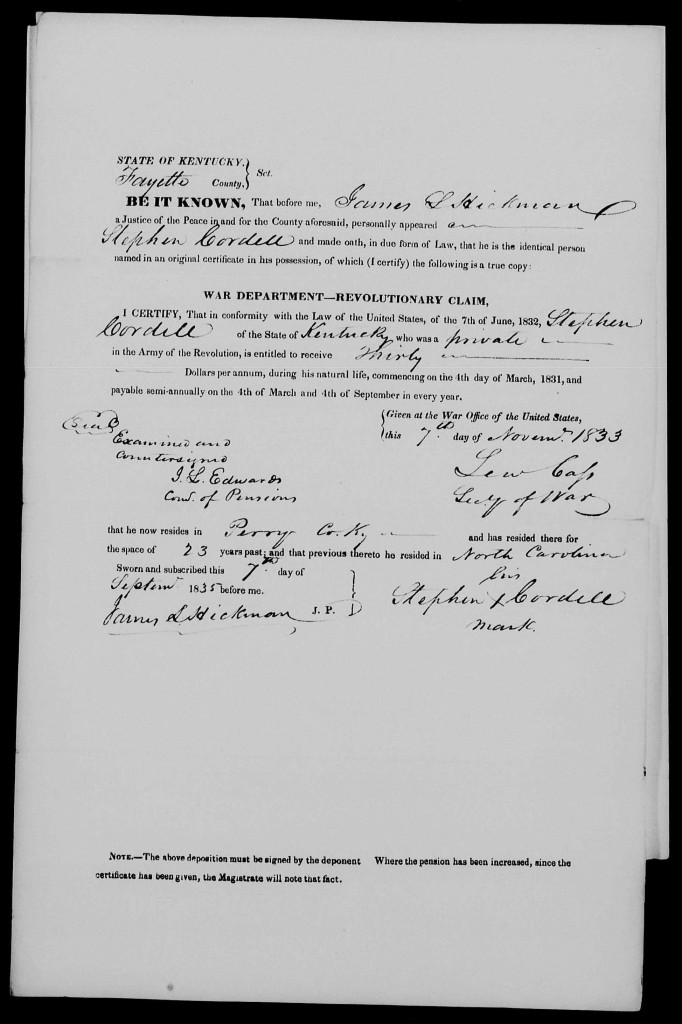 STATE OF KENTUCKY,
Fayette County, } Sct.
BE IT KNOWN, That before me, James L Hickman
a Justice of the Peace in and for the County aforesaid, personally appeared
Stephen Cordell and made oath, in due form of Law, that he is the identical person
named in an original certificate in his possession, of which (I certify) the following is a true copy:
WAR DEPARTMENT—REVOLUTIONARY CLAIM,
I CERTIFY, That in conformity with the Law of the United States, of the 7th of June, 1832, Stephen
Cordell of the State of Kentucky who was a private
in the Army of the Revolution, is entitled to receive Thirty
Dollars per annum, during his natural life, commencing on the 4th day of March, 1831, and
payable semi-annually on the 4th of March and 4th of September in every year.
Seal
Given at the War Office of the United States,
this 7th day of Novemr. 1833
Examined and
Countersigned
J. L. Edwards
Com. of Pensions
Lew Cass
Secy of War
that he now resides in Perry Co. Ky and has resided there for
the space of 23 years past; and that previous thereto he resided in North Carolina
Sworn and subscribed this 7th day of
Septemr 1835 before me.
James L Hickman J. P.
his
Stephen X Cordell
mark.
NOTE.—The above deposition must be signed by the deponent Where the pension has been increased, since the
certificate has been given, the Magistrate will note that fact.